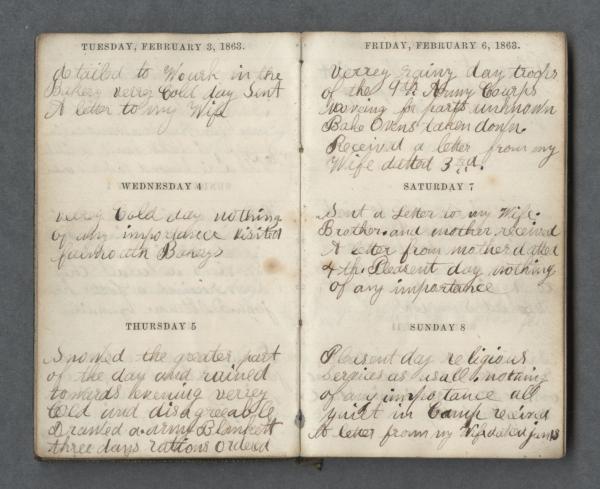 TUESDAY, FEBRUARY 3, 1863.
detailed to Wourk in the
Bakery verry Cold day Sent
A letter to my Wife
WEDNESDAY 4
verry Cold day nothing
of any importance visited
falmouth Bakerys
THURSDAY 5
Snowed the greater part
of the day and rained
towards evening verrey
Cold and disagreeable
Drawed a army Blankett
three days rations ordered
FRIDAY, FEBRUARY 6, 1863.
Verrey rainy day troops
of the 9th Army Courps
moveing for parts unknown
Bake Ovens taken down
Received a letter from my
Wife datted 3rd.
SATURDAY 7
Sent a Letter to my Wife.
Brother. and mother received
A letter from mother dated
4th. Plesent day nothing
of any importance
SUNDAY 8
Plesent day religious
Services as usall nothing
of any importance all
quiet in Camp received
A letter from my Wife dated